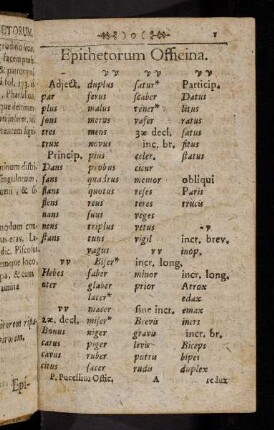 1
Epithetorum Officina.
Adject. duplus satur* Particip.
par ferus scaber Datus
plus malus tener* litus
sons merus vafer ratus
tres mens 3æ decl. satus
trux novus inc. br. situs
Princip. pius celer. status
Dans probus cicur
fans quadrus memor obliqui
flans quotus reses Paris
flens reus teres trucis
nans suus veges
nens triplus vetus
stans tuus vigil incr. brev.
vagus inop.
Bifer* incr. long.
Hebes faber minor incr. long.
uter glaber prior Atrox
lacer* edax
macer sine incr. emax
2æ. decl. miser* Brevis iners
Bonus niger gravis incr. br.
carus piger levis Biceps
cavus ruber putris bipes
citus sacer rudis duplex
P. Pucellini Offic. A redux
Epi-